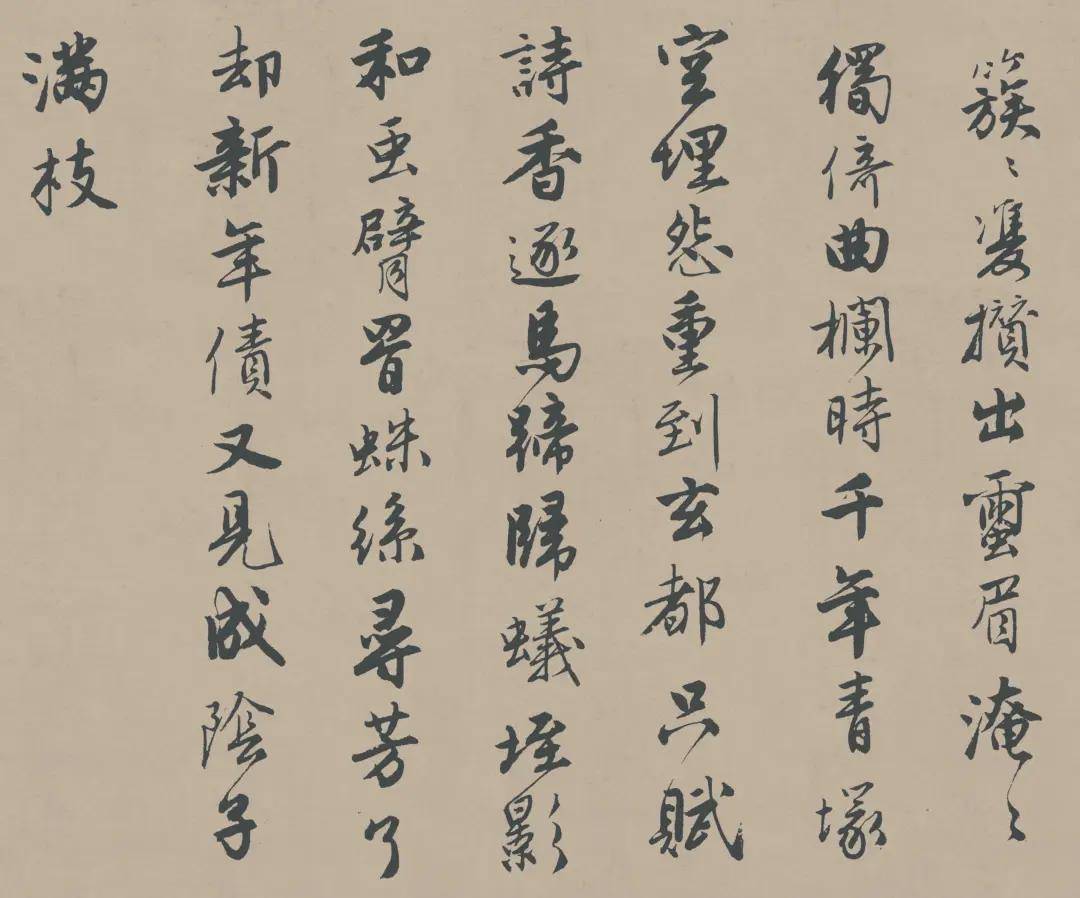 簇〻雙攢出蠒眉淹〻
獨倚曲欄時千年青塚
空埋怨重到玄都只賦
詩香逐馬蹄歸蟻垤影
和虫臂罥蛛絲尋芳了
却新年債又見成陰子
滿枝